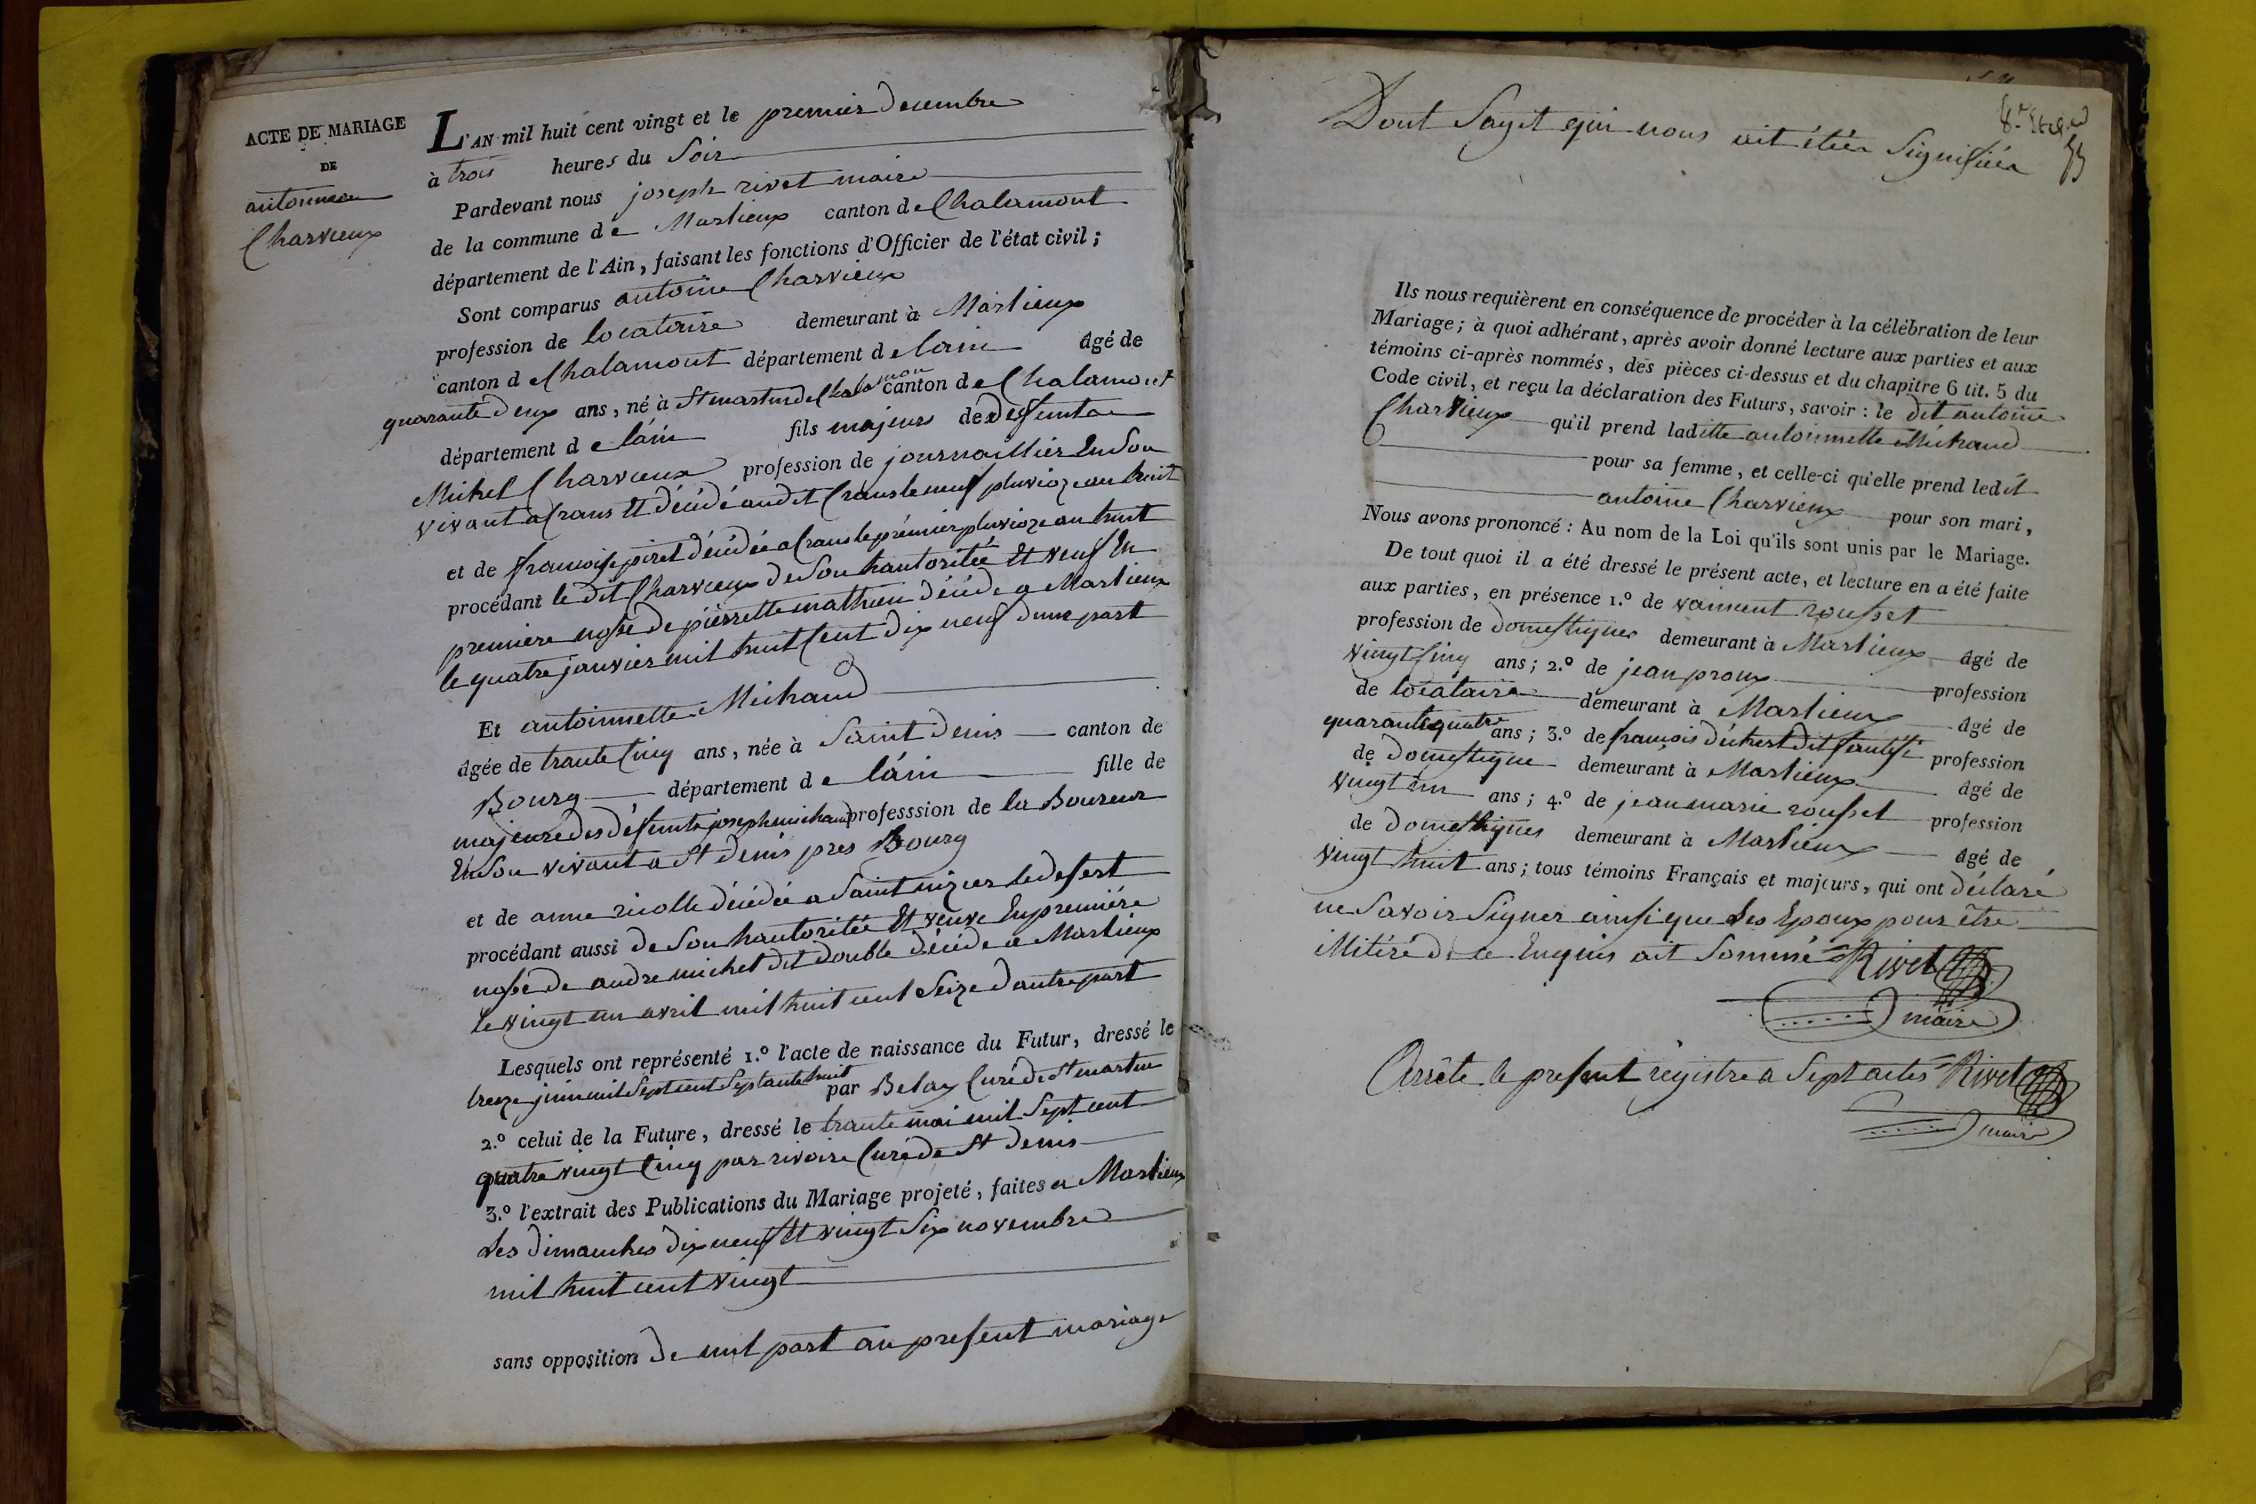 ACTE DE MARIAGE
DE
antoinne
Charvieux
L'AN mil huit cent vingt et le premier decembre
à trois heures du Soir
Pardevant nous joseph rivet maire
de la commune de Marlieux canton de Chalamont
département de l'Ain, faisant les fonctions d'Officier de l'état civil;
Sont comparus antoine Charvieux
profession de locataire demeurant à Marlieux
canton d Chalamont département de lain âgé de
quarante deux ans, né à St martin de Chalamon canton de Chalamont
département de láin fils majeurs de deffunt
Michel Charvieux profession de journaillier En Son
vivant a Crans Et décédé audit Crans le neuf plivioze an huit
et de francoise piret décédée a Crans le prémier pluvioze an huit
procédant le dit Charvieux de Son hautoritée Et veuf En
premiere nosse de pierrette mathieu décéde a Marlieux
le quatre janvier mil huit Cent dix neuf dune part
Et antoinnette Michaud
âgée de trante Cinq ans, née à Saint denis canton de
Bourg département de láin fille de
majeure des défunts joseph michaud professsion de la Boureur
En Son vivant a St denis pres Bourg
et de anne riolle décédée a Saint nizier le desert
procédant aussi de Son hautoritée Et veuve En premiére
nosse de andre michel dit double décéde a Marlieux
le vingt un avril mil huit cent Seize d autre part
Lesquels ont représenté 1.º l'acte de naissance du Futur, dressé le
treze juin mil Sept cent Septante huit par Belay Curé de St martin
2.º celui de la Future, dressé le trante mai mil Sept cent
quatre vingt Cinq par rivoire Curé de St denis
3.º l'extrait des Publications du Mariage projeté, faites a Marlieux
Les dimanches dix neuf Et vingt Six novembre
mil huit cent vingt
sans opposition de nul part au present mariage
Dont Sagit qui nous ait étée Signifiée
Ils nous requièrent en conséquence de procéder à la célébration de leur
Mariage; à quoi adhérant, après avoir donné lecture aux parties et aux
témoins ci-après nommés, des pièces ci-dessus et du chapitre 6 tit. 5 du
Code civil, et reçu la déclaration des Futurs, savoir: le dit antoine
Charvieux qu'il prend ladite antoinnette Michaud
pour sa femme, et celle-ci qu'elle prend ledit
antoine Charvieux pour son mari,
Nous avons prononcé: Au nom de la Loi qu'ils sont unis par le Mariage.
De tout quoi il a été dressé le présent acte, et lecture en a été faite
aux parties, en présence 1.º de vaincent rousset
profession de domestiques demeurant à Marlieux âgé de
vingt Cinq ans; 2.º de jean proux profession
de locataire demeurant à Marlieux âgé de
quarante quatre ans; 3.º de francois dit profession
de domestique demeurant à Marlieux âgé de
vingt un ans; 4.º de jean marie rousset profession
de domestiques demeurant à Marlieux âgé de
vingt huit ans; tous témoins Français et majeurs, qui ont déclaré
ne Savoir Signer ainsi que Les Epoux pour être
illitéré de ce Enquis ait Sommé Rivet
maire
Arrête le present régistre a Sept actes Rivet
maire